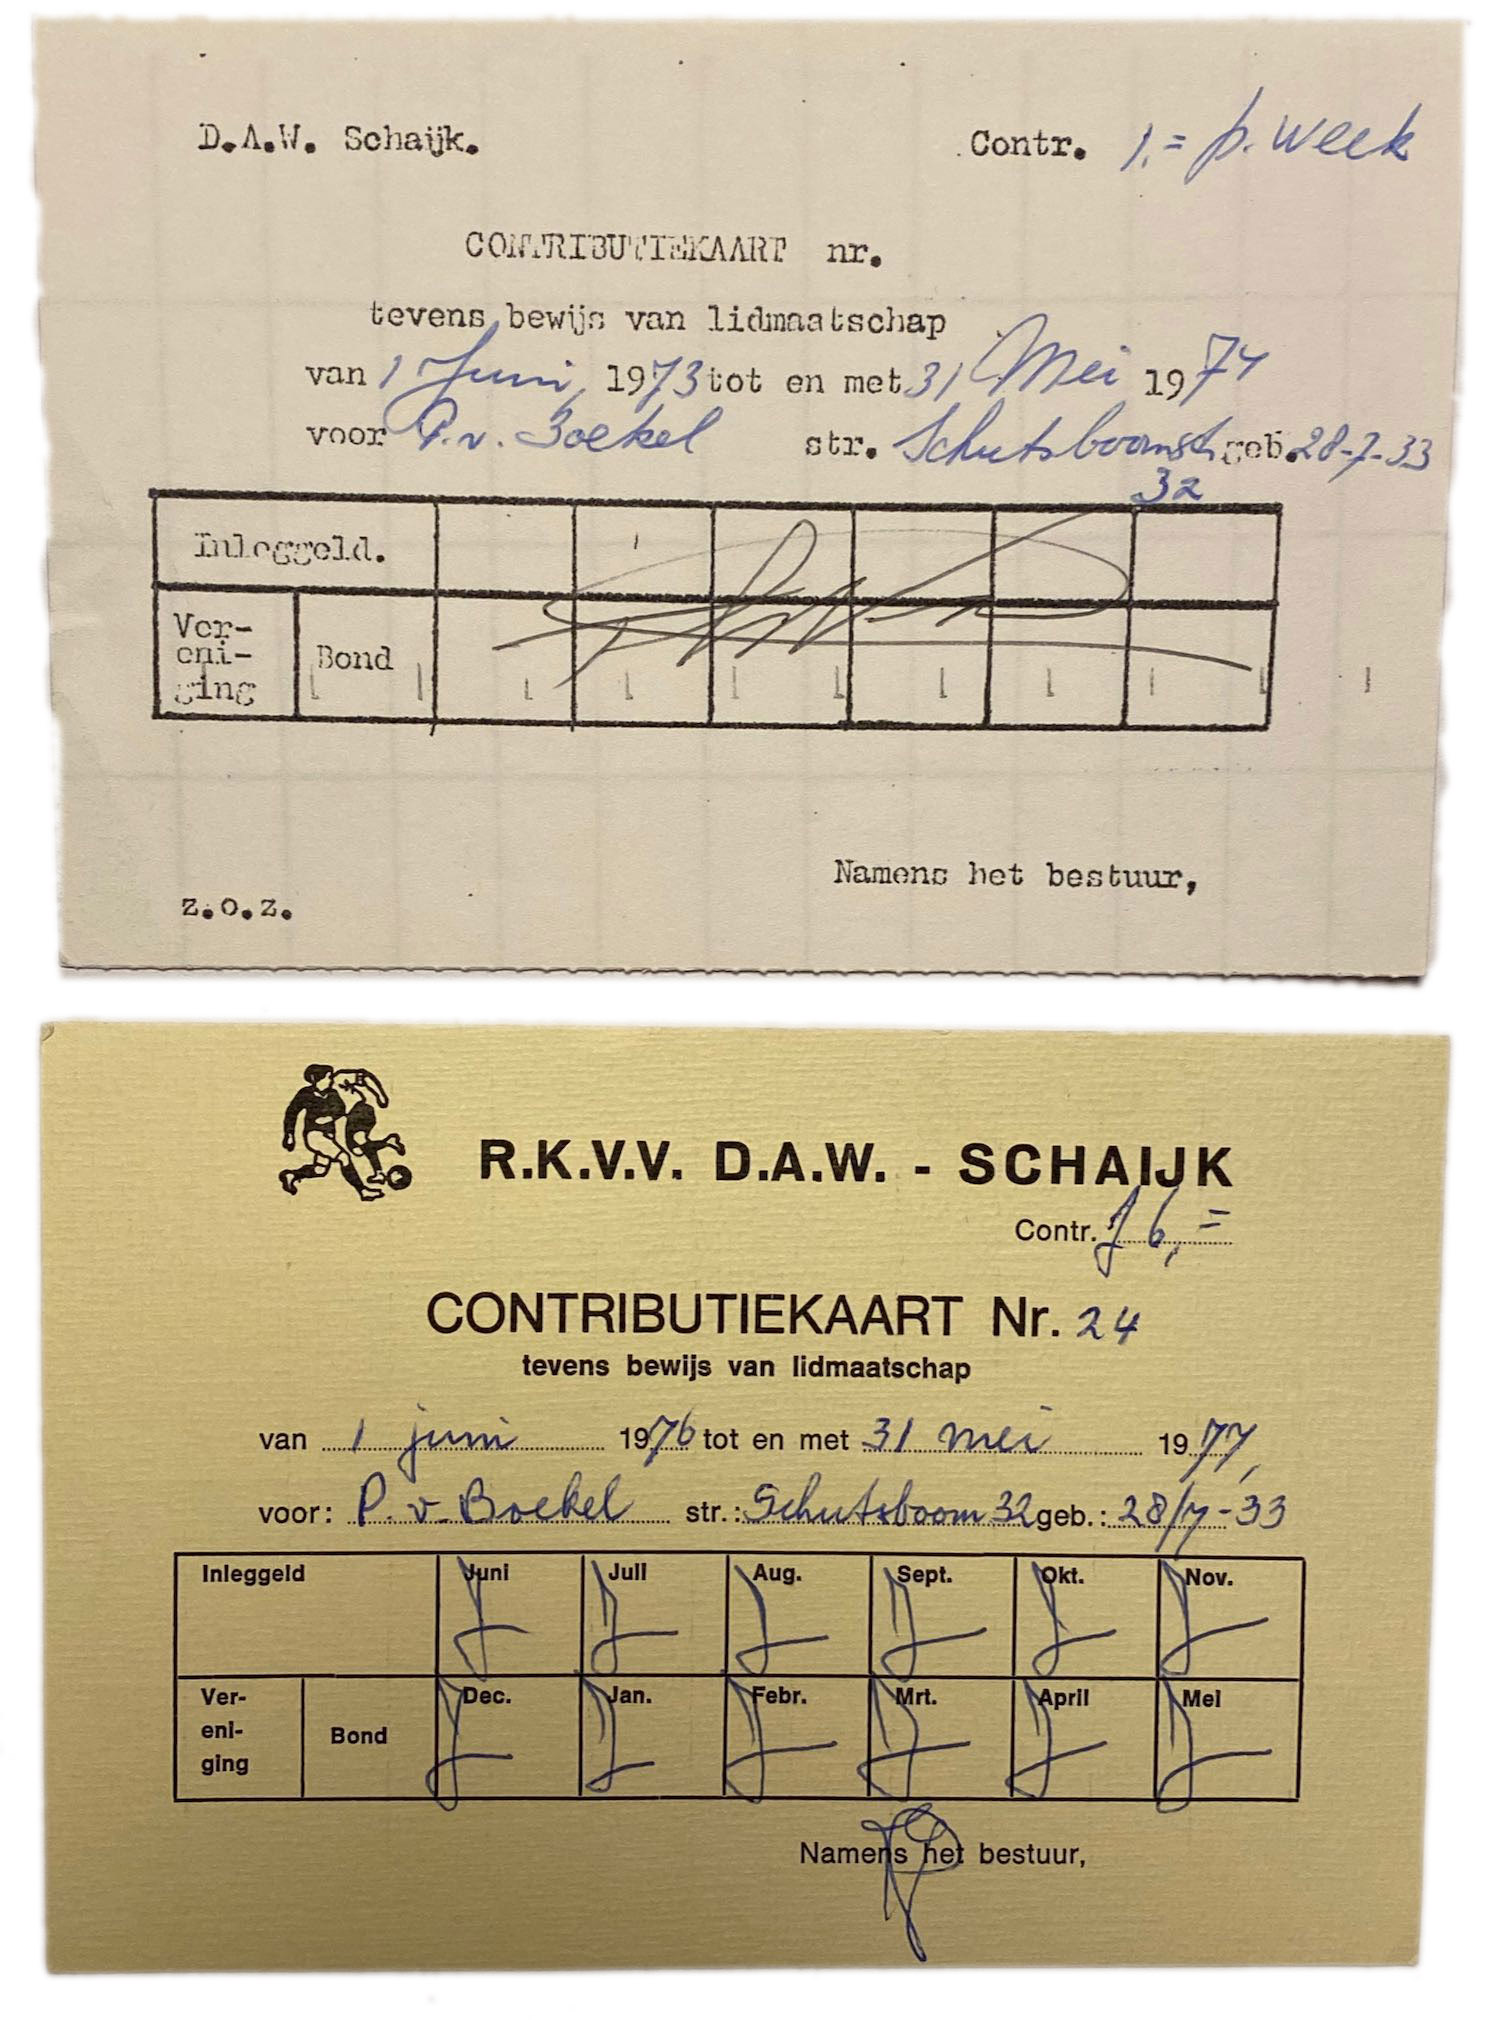 D.A.W. Schaijk. Contr. 1,= p. week
CONTRIBUTIEKAART nr.
tevens bewijs van lidmaatschap
van 1 Juni, 1973 tot en met 31 Mei 1974
voor P. v. Boekel str. Schutsboomst. geb. 28-7-33
32
Inleggeld.
Ver-
eni-
ging
Bond
Namens het bestuur,
z.o.z.
R.K.V.V. D.A.W. - SCHAIJK
Contr. f 6,=
CONTRIBUTIEKAART Nr. 24
tevens bewijs van lidmaatschap
van 1 juni 1976 tot en met 31 mei 1977,
voor: P. v. Boekel str.: Schutsboom 32 geb.: 28/7-33
Inleggeld Juni Juli Aug. Sept. Okt. Nov.
Ver-
eni-
ging
Bond
Dec. Jan. Febr. Mrt. April Mei
Namens het bestuur,